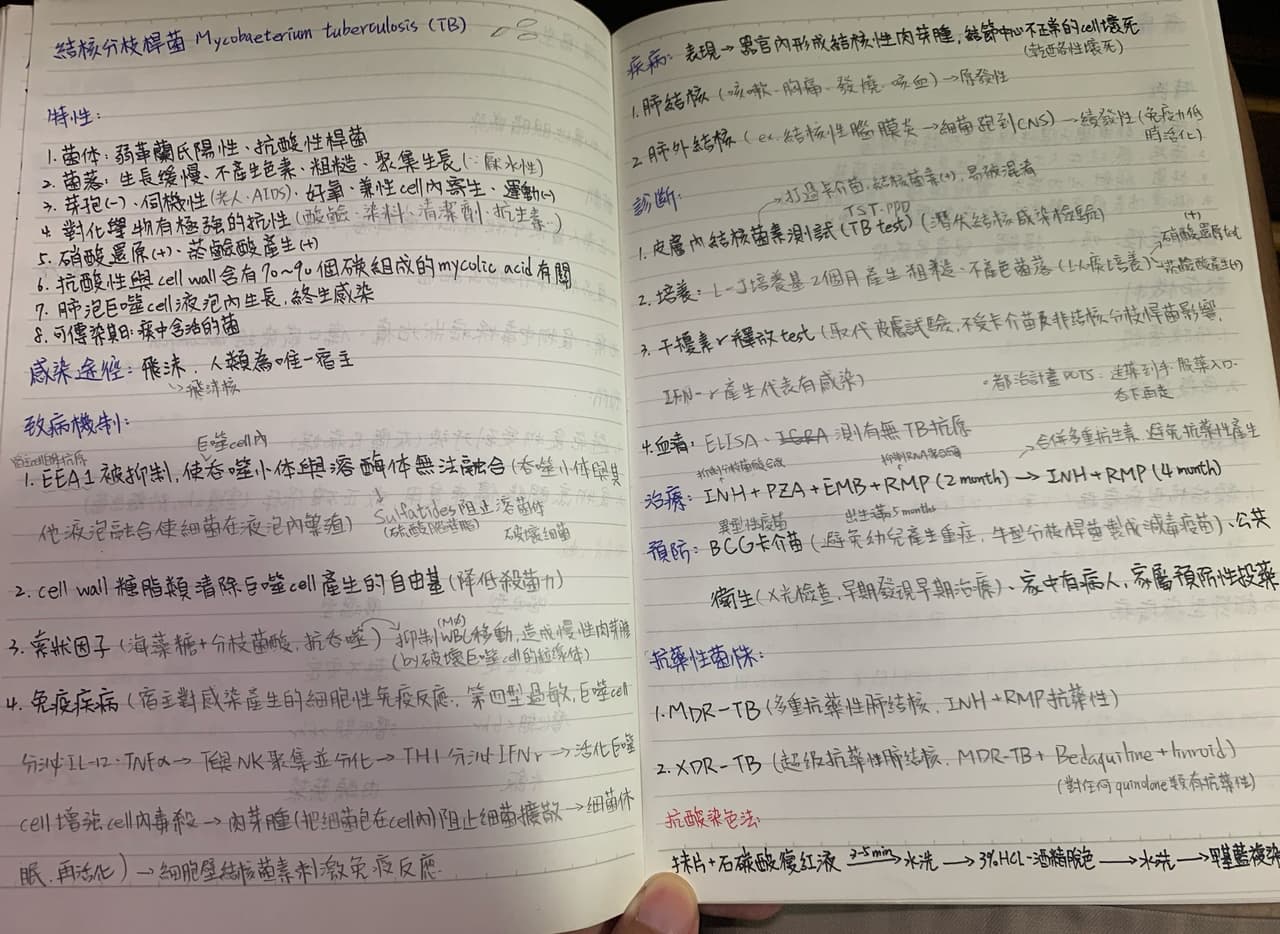 結核分枝桿菌 Mycobaeterium tuberculosis (TB)
特性:
1. 菌体: 弱革蘭氏陽性、抗酸性桿菌
2. 菌落: 生長緩慢、不產生色素、粗糙、聚集生長(∵厭水性)
3. 芽孢(-)、伺機性(老人、AIDS)、好氧、兼性cell內寄生、運動(-)
4. 對化學物有極強的抗性(酸鹼、染料、清潔劑、抗生素…)
5. 硝酸還原(+)、菸鹼酸產生(+)
6. 抗酸性與cell wall含有70~90個碳組成的mycolic acid有關
7. 肺泡巨噬cell液泡內生長, 終生感染
8. 可傳染期: 痰中含活的菌
感染途徑: 飛沫, 人類為唯一宿主
飛沫核
致病機制:
巨噬cell內
1. EEA1被抑制, 使吞噬小体與溶酶体無法融合(吞噬小体與其
他液泡融合使細菌在液泡內繁殖)
Sulfatides阻止溶菌体
(硫酸腦苷脂) 破壞細菌
2. cell wall 糖脂類清除巨噬cell產生的自由基(降低殺菌力)
3. 索狀因子(海藻糖+分枝菌酸, 抗吞噬) 抑制WBC移動, 造成慢性肉芽腫
(Mφ)
(by破壞巨噬cell的粒線体)
4. 免疫疾病(宿主對感染產生的細胞性免疫反應, 第四型過敏, 巨噬cell
分泌IL-12、TNFα→T與NK聚集並分化→TH1分泌IFNr→活化巨噬
cell增強cell內毒殺→肉芽腫(把細菌包在cell內)阻止細菌擴散→細菌休
眠, 再活化)→細胞壁結核菌素刺激免疫反應.
疾病: 表現→器官內形成結核性肉芽腫, 結節中心不正常的cell壞死
(乾酪性壞死)
1. 肺結核(咳嗽、胸痛、發燒、咳血)→原發性
2. 肺外結核(ex. 結核性腦膜炎→細菌跑到CNS)→續發性(免疫力低
時活化)
診斷:
打過卡介苗, 結核菌素(+), 易被混淆
TST、PPD
1. 皮膚內結核菌素測試(TB test)(潛伏結核感染檢驗)
(+)
硝酸還原test
2. 培養: L-J培養基 2個月產生粗糙、不產色菌落(以痰培養)
菸鹼酸產生(+)
3. 干擾素r釋放test(取代皮膚試驗, 不受卡介苗及非結核分枝桿菌影響,
IFN-r產生代表有感染)
•都治計畫DOTS: 送藥到手, 服藥入口,
吞下再走
4. 血清: ELISA、IGRA 測有無TB抗原
合併多重抗生素, 避免抗藥性產生
治療: INH+PZA+EMB+RMP (2 month) → INH+RMP (4 month)
異型性疫苗 出生滿5 months
預防: BCG卡介苗(避免幼兒產生重症, 牛型分枝桿菌製成減毒疫苗)、公共
衛生(X光檢查, 早期發現早期治療)、家中有病人, 家屬預防性投藥
抗藥性菌株:
1. MDR-TB (多重抗藥性肺結核, INH+RMP抗藥性)
2. XDR-TB (超級抗藥性肺結核, MDR-TB+ Bedaquiline + linroid)
(對任何quindone類有抗藥性)
抗酸染色法:
抹片+石碳酸復紅液 3-5min→水洗→3%HCL-酒精脫色→水洗→甲基藍複染